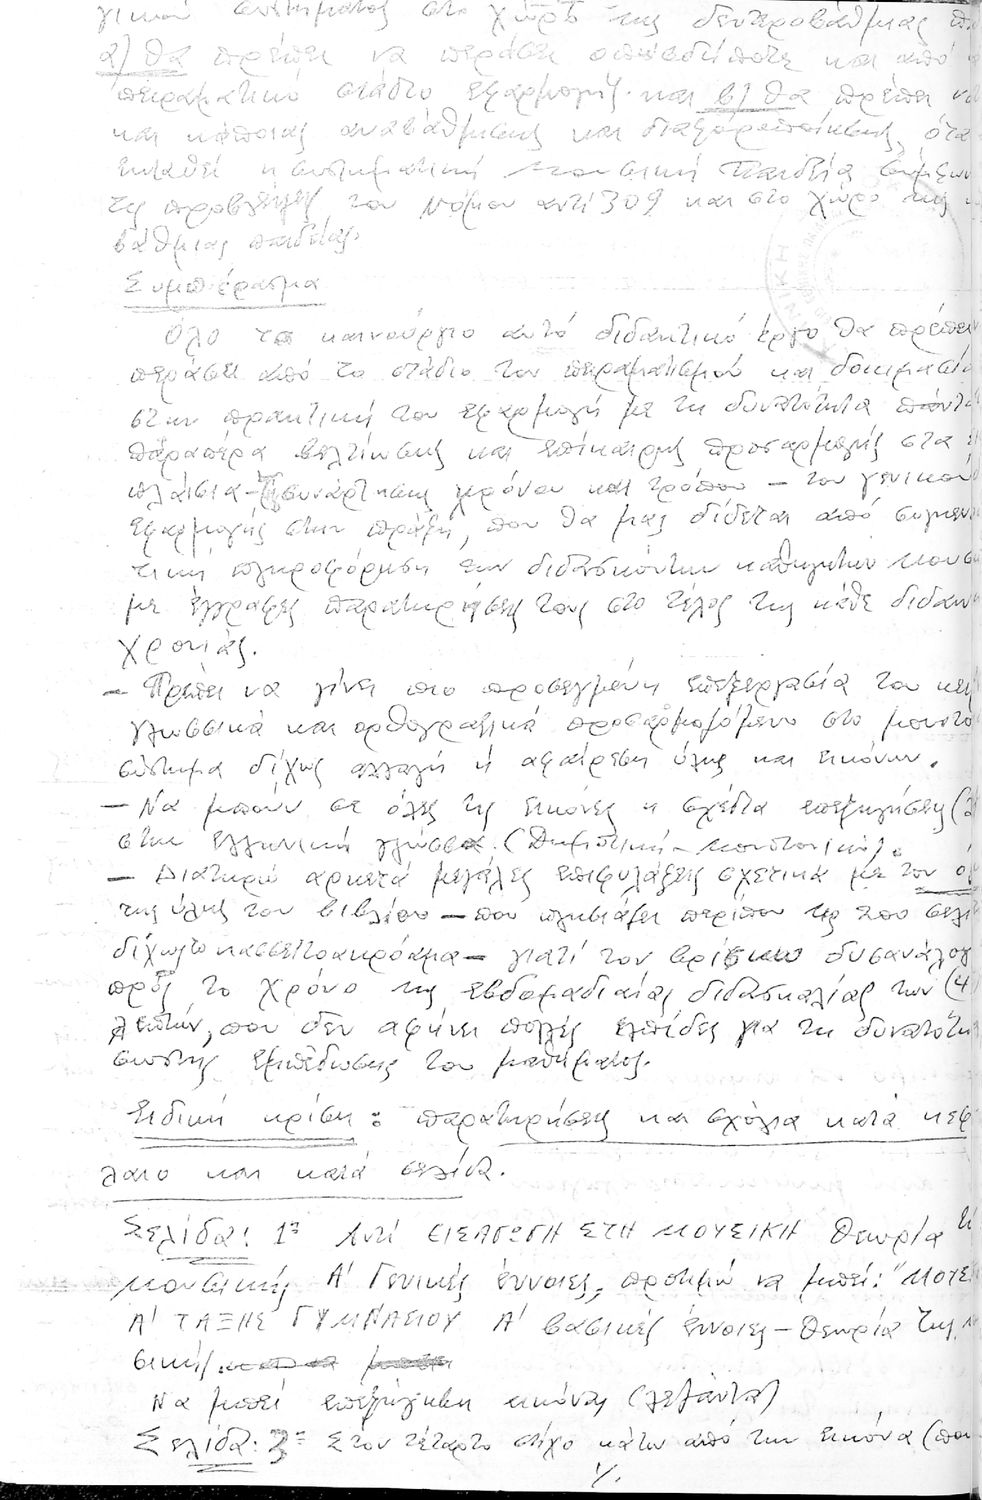 γικού συστήματος στο χώρο της δευτεροβάθμιας
α) θα πρέπει να περάσει οπωσδήποτε και από
πειραματικό στάδιο εφαρμογής και β) θα πρέπει
και κάποιας αναβάθμισης και διαφοροποίησης, ότα
η συστηματική Μουσική Παιδεία σύμφων
τις προβλέψεις του Νόμου 309 και στο χώρο της
βάθμιας παιδείας.
Συμπέρασμα
Όλο το καινούργιο αυτό διδακτικό έργο θα πρέπει
περάσει από το στάδιο του πειραματισμού και δοκιμασία
στην πρακτική του εφαρμογή με τη δυνατότητα πάντα
παραπέρα βελτίωσης και επίκαιρης προσαρμογής στα
πλαίσια - συνάρτησης χρόνου και τρόπου - του γενικού
εφαρμογής στην πράξη, που θα μας δίδεται από συγκεν
τική πληροφόρηση των διδασκόντων καθηγητών Μουσι
με έγγραφες παρατηρήσεις τους στο τέλος της κάθε διδακτ
χρονιάς.
- Πρέπει να γίνει πιο προσεγμένη επεξεργασία του κει
γλωσσικά και ορθογραφικά προσαρμοζόμενο στο μονοτο
σύστημα δίχως αλλαγή ή αφαίρεση ύλης και εικόνων.
- Να μπούν σε όλες τις εικόνες ή σχέδια επεξηγήσεις
στην ελληνική γλώσσα. (Δημοτική - μονοτονικό).
- Διατηρώ αρκετά μεγάλες επιφυλάξεις σχετικά με τον
της ύλης του βιβλίου - που πλησιάζει περίπου τις 200 σελί
δίχως το κασσετοακρόαμα - γιατί τον βρίσκω δυσανάλογ
προς το χρόνο της εβδομαδιαίας διδασκαλίας των (4
λεπτών, που δεν αφήνει πολλές ελπίδες για τη δυνατότη
σωστής εμπέδωσης του μαθήματος.
Ειδική κρίση: παρατηρήσεις και σχόλια κατά κεφ
λαιο και κατά σελίδα.
Σελίδα: 1η Αντί ΕΙΣΑΓΩΓΗ ΣΤΗ ΜΟΥΣΙΚΗ Θεωρία τη
Μουσικής Α' Γενικές έννοιες, προτιμώ να μπεί:
Α' ΤΑΞΗΣ ΓΥΜΝΑΣΙΟΥ Α' βασικές έννοιες - θεωρία της
σικής
Να μπεί επεξήγηση εικόνας (λεζάντα)
Σελίδα: 3η Στον τέταρτο στίχο κάτω από την εικόνα (που
./.